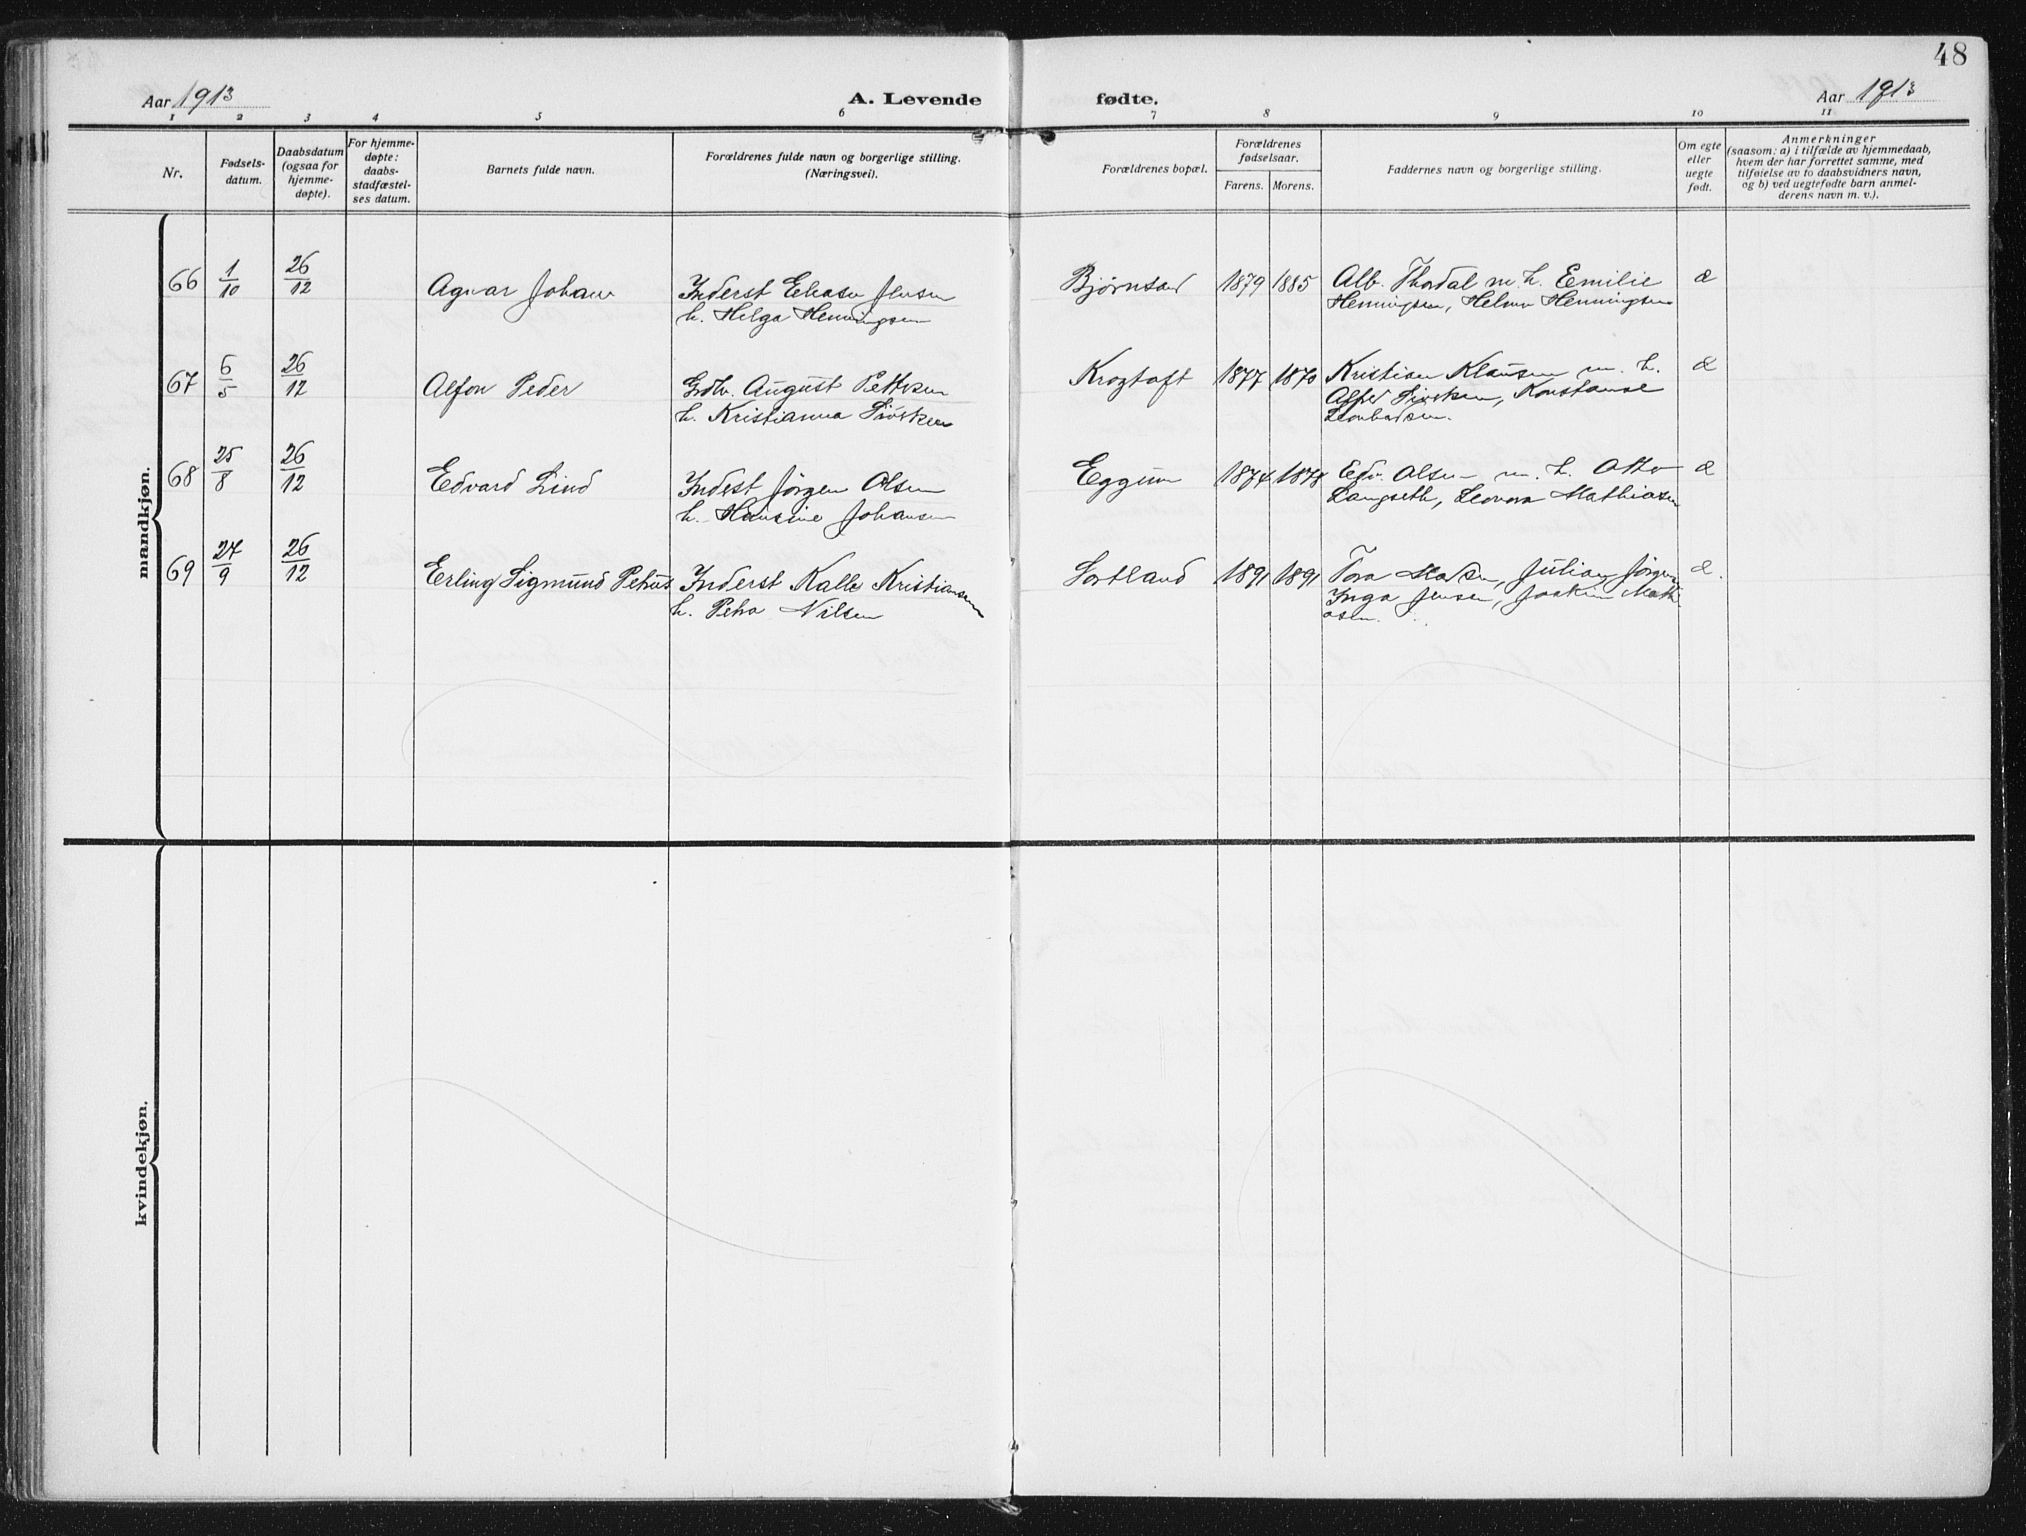 48
Aar 1913
A. Levende
fødte.
Aar 1913
1 2 3 4 5 6 7 8 9 10 11
Nr.
Fødsels-
datum.
Daabsdatum
(ogsaa for
hjemme-
døpte).
For hjemme-
døpte:
daabs-
stadfæstel-
ses datum.
Barnets fulde navn.
Forældrenes fulde navn og borgerlige stilling.
(Næringsvei).
Forældrenes bopæl.
Forældrenes
fødselsaar.
Farens. Morens.
Faddernes navn og borgerlige stilling.
Om egte
eller
uegte
født.
Anmerkninger
(saasom: a) i tilfælde av hjemmedaab,
hvem der har forrettet samme, med
tilføielse av to daabsvidners navn,
og b) ved uegtefødte barn anmel-
derens navn m. v.).
mandkjøn.
66 1/10 26/12 Agnar Johan Inderst Eliase Jensen Bjørnsand 1879 1885 Alb. Thodal m. h. Emilie æ
h. Helga Henningsen Henningsen, Helmer Henningsen
67 6/5 26/12 Alfon Peder Grdbr. August Pettersen Krogtoft 1877 1870 Kristian Klausen m. h. æ
h. Kristianna Alfred Konstanse
68 25/8 26/12 Edvard Lind Inderst Jørgen Olsen Eggum 1874 1878 Edv. Olsen m. h. Otto æ
h. Hansine Johansen Langseth, Leonora Mathiasen
69 27/9 26/12 Erling Sigmund Petrus Inderst Kalle Kristiansen Sortland 1891 1891 Tora Madsen, Julian Jørgens æ.
h. Petra Nilsen Inga Jensen, Joakim Math
asen.
kvindekjøn.